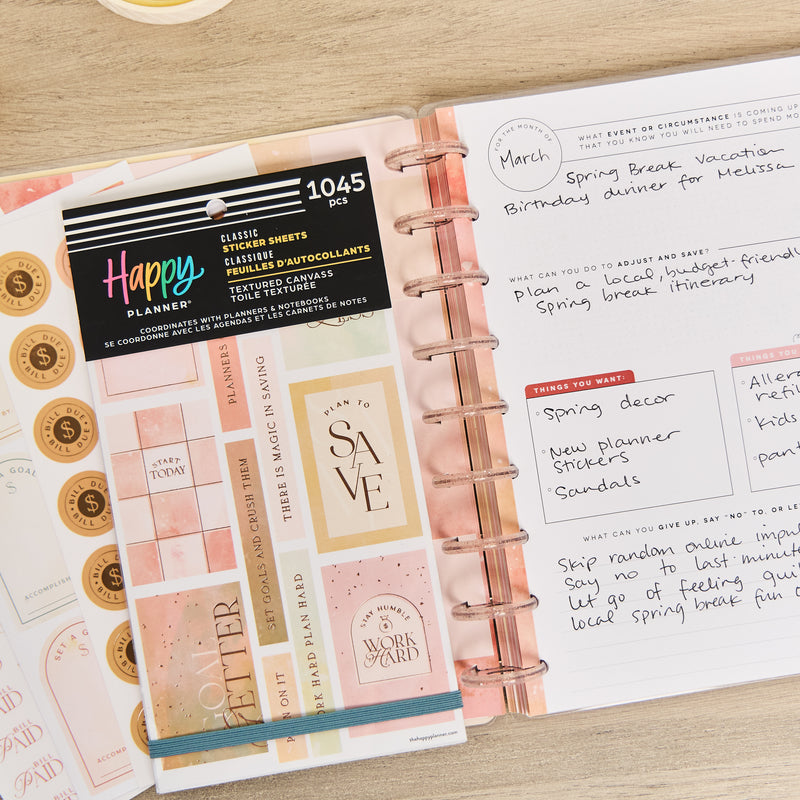 1045
pcs
CLASSIC
STICKER SHEETS
CLASSIQUE
FEUILLES D'AUTOCOLLANTS
Happy
PLANNER®
TEXTURED CANVAS
TOILE TEXTURÉE
COORDINATES WITH PLANNERS & NOTEBOOKS
SE COORDONNE AVEC LES AGENDAS ET LES CARNETS DE NOTES
PLANNERS
THERE IS MAGIC IN SAVING
PLAN TO
SAVE
START
TODAY
SET GOALS AND CRUSH THEM
GOAL
GETTER
ON IT
WORK HARD PLAN HARD
STAY HUMBLE
$
WORK
HARD
thehappyplanner.com
BILL DUE
$
BILL DUE
BILL DUE
$
BILL DUE
BILL DUE
$
BILL DUE
BILL DUE
$
BILL DUE
BY
SET A GOAL
ACCOMPLISH
BILL
PAID
BILL
PAID
FOR THE MONTH OF
March
WHAT EVENT OR CIRCUMSTANCE IS COMING UP
THAT YOU KNOW YOU WILL NEED TO SPEND
Spring Break Vacation
Birthday dinner for Melissa
WHAT CAN YOU DO TO ADJUST AND SAVE?
Plan a local, budget-friendly
spring break itinerary
THINGS YOU WANT:
Spring decor
New planner
stickers
Sandals
THINGS YOU
refil
kids
WHAT CAN YOU GIVE UP, SAY "NO" TO, OR
Skip random online
Say no to last-minute
let go of feeling
local spring break fun